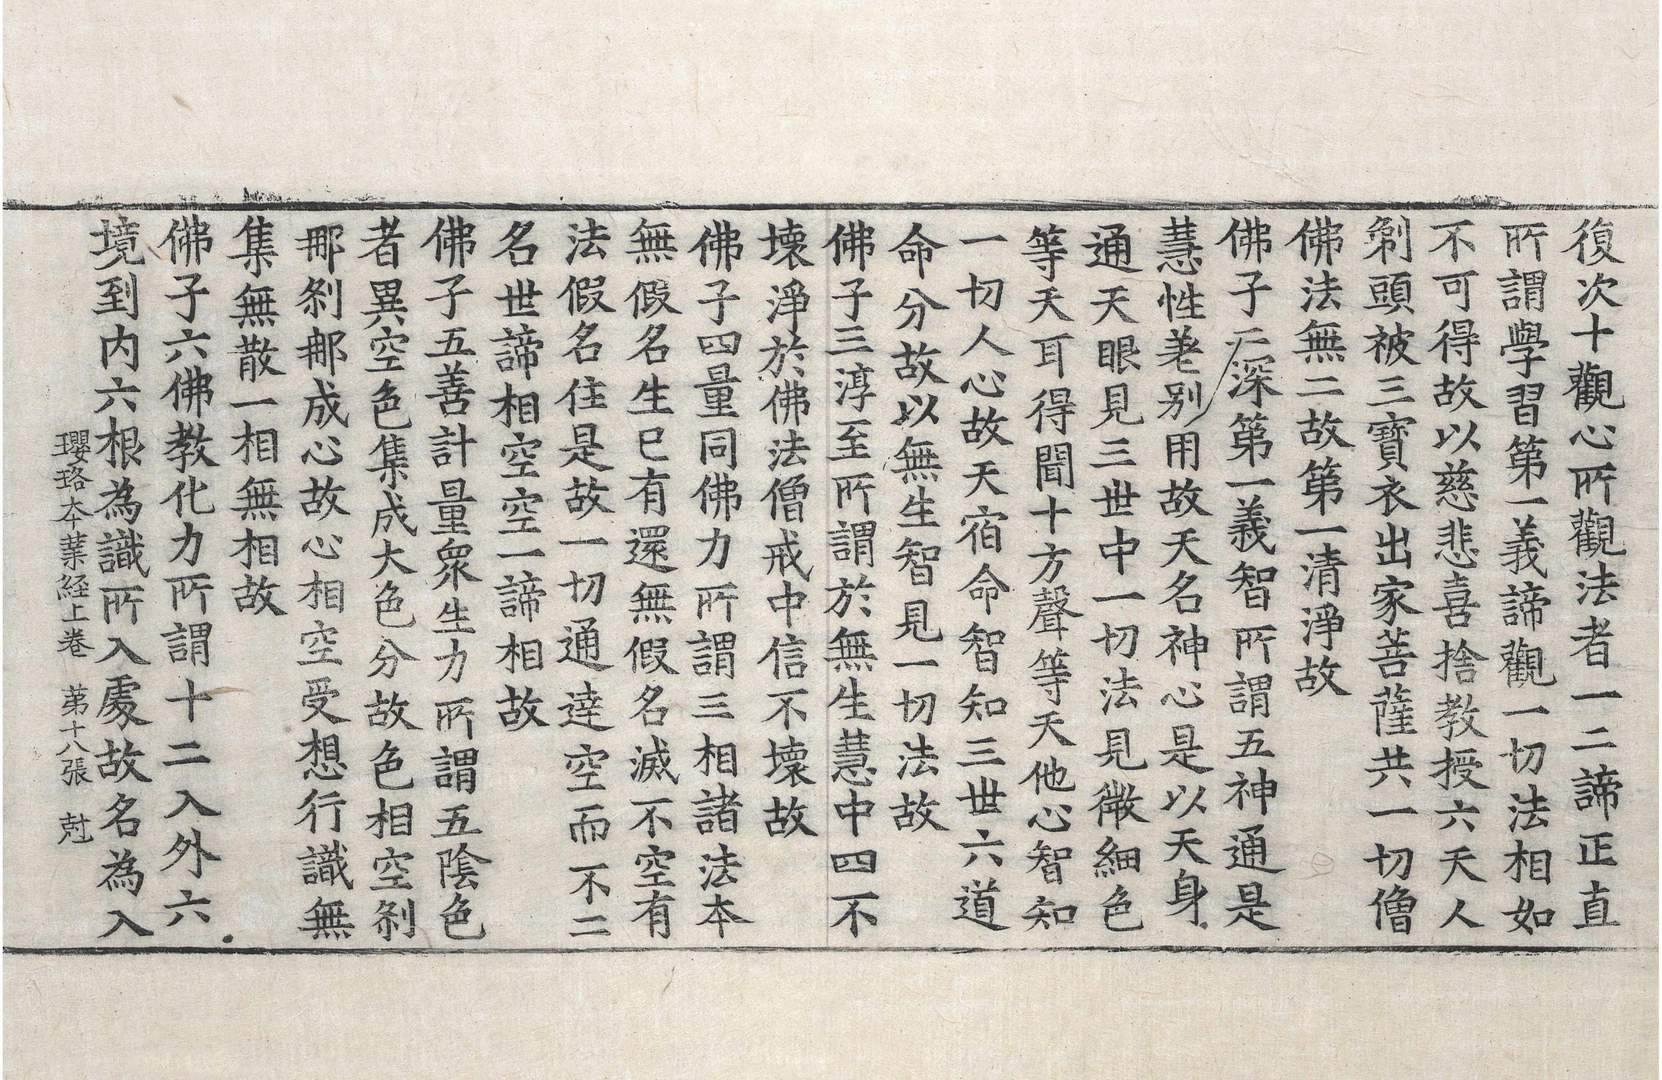 復次十觀心所觀法者一二諦正直
所謂學習第一義諦觀一切法相如
不可得故以慈悲喜捨教授六天人
剃頭被三寶衣出家菩薩共一切僧
佛法無二故第一清淨故
佛子二深第一義智所謂五神通是
慧性差別用故天名神心是以天身
通天眼見三世中一切法見微細色
等天耳得聞十方聲等天他心智知
一切人心故天宿命智知三世六道
命分故以無生智見一切法故
佛子三淳至所謂於無生慧中四不
壞淨於佛法僧戒中信不壞故
佛子四量同佛力所謂三相諸法本
無假名生已有還無假名滅不空有
法假名住是故一切通達空而不二
名世諦相空空一諦相故
佛子五善計量眾生力所謂五陰色
者異空色集成大色分故色相空剎
那剎那成心故心相空受想行識無
集無散一相無相故
佛子六佛教化力所謂十二入外六
境到內六根為識所入處故名為入
瓔珞本業経上卷 第十八張